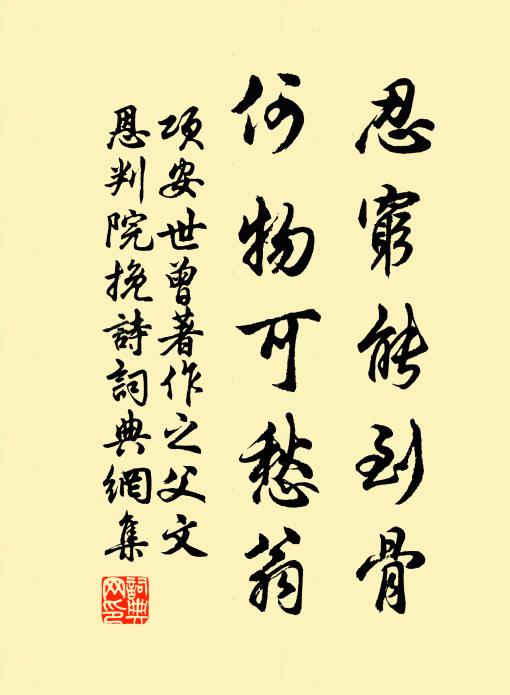 忍窮能到骨
何物可愁翁
項安世曾著作之父文
恩判院挽詩詞典網集
詞典
网印